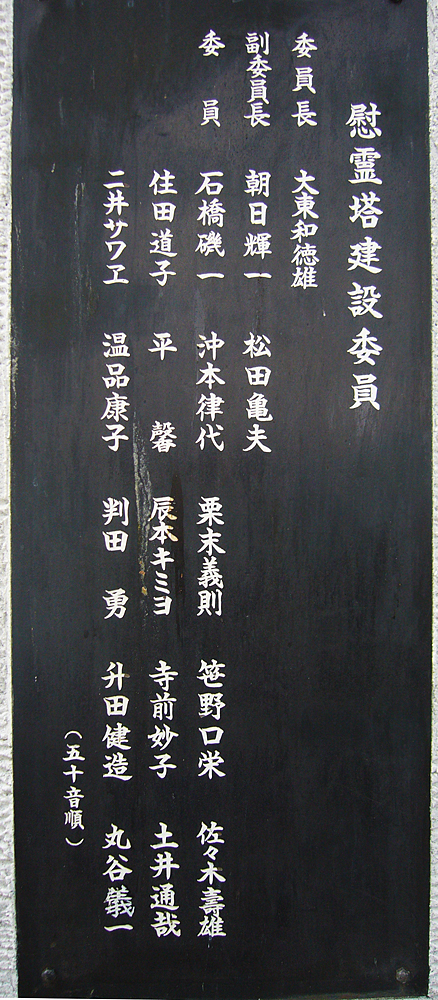 慰霊塔建設委員
委員長 大東和徳雄
副委員長 朝日輝一 松田亀夫
委員 石橋磯一 沖本律代 栗末義則 笹野口栄 佐々木壽雄
住田道子 平馨 辰本キミヨ 寺前妙子 土井通哉
二井サワエ 温品康子 判田勇 升田健造 丸谷儀一
(五十音順)